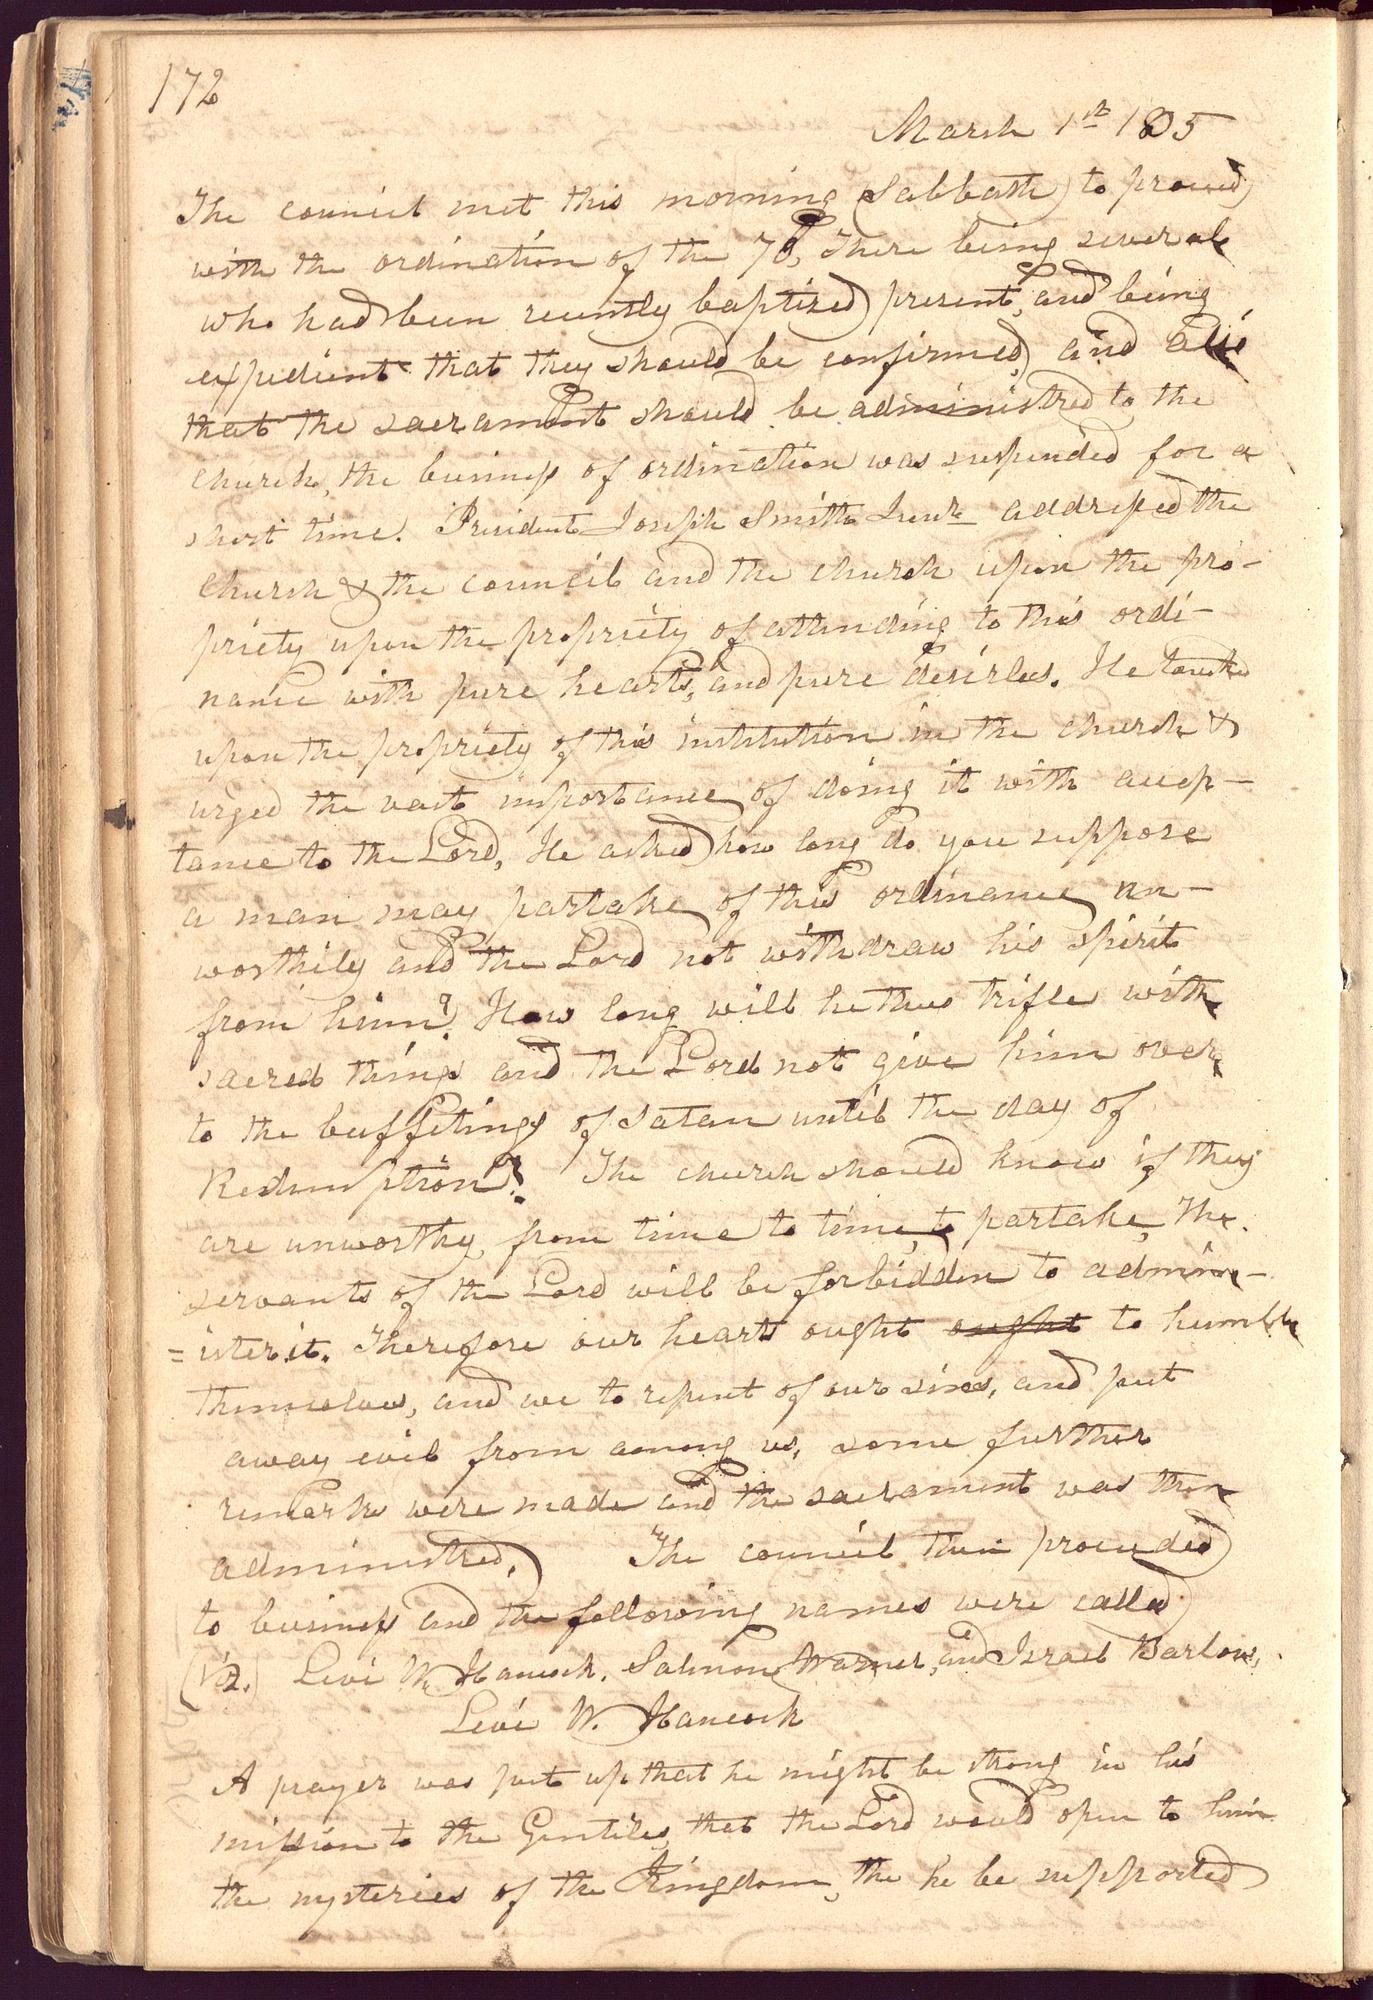 172
March 1st 1835
The council met this morning (Sabbath) to proceed
with the ordination of the 70, There being several
who had been recently baptized present, and being
expedient that they should be confirmed, and also
that the sacrament should be administred to the
church, the business of ordination was suspended for a
short time. President Joseph Smith Junr. addressed the
church & the council and the church upon the pro-
priety upon the propriety of attending to this ordi-
nance with pure hearts, and pure desirles. He touched
upon the propriety of this institution in the church &
urged the vast importance of doing it with accep-
tance to the Lord, He asked how long do you suppose
a man may partake of this ordinance un-
worthily and the Lord not withdraw his spirit
from him? How long will he thus trifle with
sacred things and the Lord not give him over
to the buffetings of Satan until the day of
Redemption? The church should know if they
are unworthy from time to time, to partake, The
servants of the Lord will be forbidden to admin-
=ister it. Therefore our hearts ought ought to humble
themselves, and we to repent of our sins, and put
away evil from among us, some further
remarks were made and the sacrament was then
administred, The council then proceeded
to business and the following names were called
(viz.) Levi W. Hancock. Salmon Warner, and Israel Barlow,
Levi W. Hancock
A prayer was put up that he might be strong in his
mission to the Gentiles, that the Lord would open to him
the mysteries of the Kingdom, the he be supported